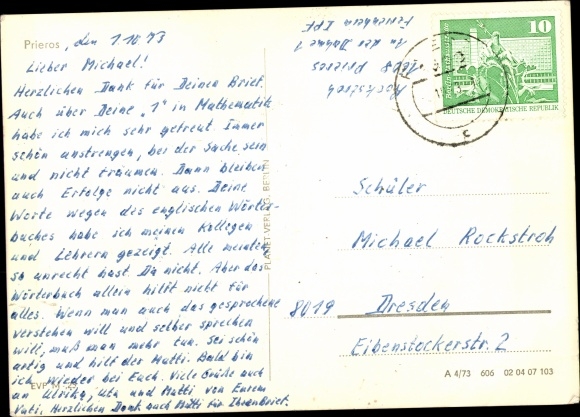 Prieros, den 1.10.73
Lieber Michael!
Herzlichen Dank für Deinen Brief.
Auch über Deine „1" in Mathematik
habe ich mich sehr gefreut. Immer
schön anstrengen, bei der Sache sein
und nicht träumen. Dann bleiben
auch Erfolge nicht aus. Deine
Worte wegen des englischen Wörter-
buches habe ich meinen Kollegen
und Lehrern gezeigt. Alle meinten,
so unrecht hast Du nicht. Aber das
Wörterbuch allein hilft nicht für
alles. Wenn man auch das gesprochene
verstehen will und selber sprechen
will, muß man mehr tun. Sei schön
artig und hilf der Mutti. Bald bin
ich wieder bei Euch. Viele Grüße auch
an Ulrike, Uta und Mutti von Eurem
Vati. Herzlichen Dank auch Mutti für Ihren Brief.
EVP M
PLANET-VERLAG BERLIN
Rockstroh
1608 Prieros
An der Dahme 1
Ferienheim IPF
10
DEUTSCHE DEMOKRATISCHE REPUBLIK
Schüler
Michael Rockstroh
8019 Dresden
Eibenstockerstr. 2
A 4/73 606 02 04 07 103